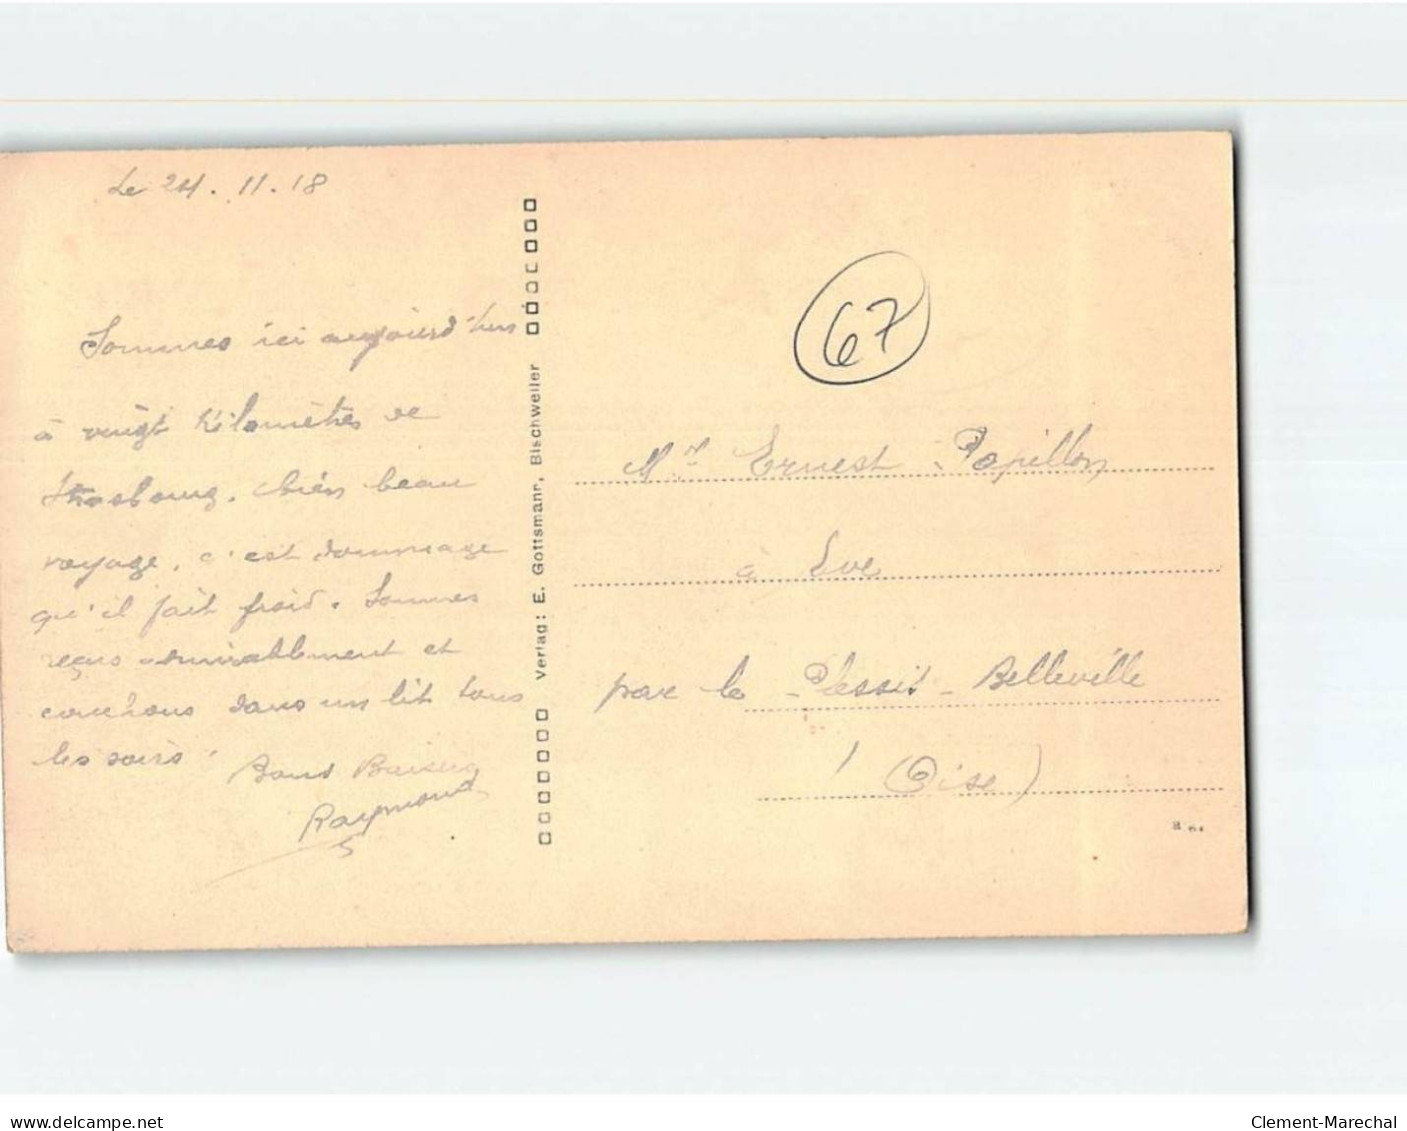 Le 24.11.18
Sommes ici aujourd'hui
à vingt Kilomètres de
Strasbourg. bien beau
voyage, c'est dommage
qu'il fait froid. Sommes
reçus admirablement et
couchons dans un lit tous
les soirs.
Bons Baisers
Raymond
Verlag: E. Gottsmann, Bischweiler
67
Mr Ernest Papillon
à Eve
par le Plessis-Belleville
(Oise)
www.delcampe.net
Clement-Marechal